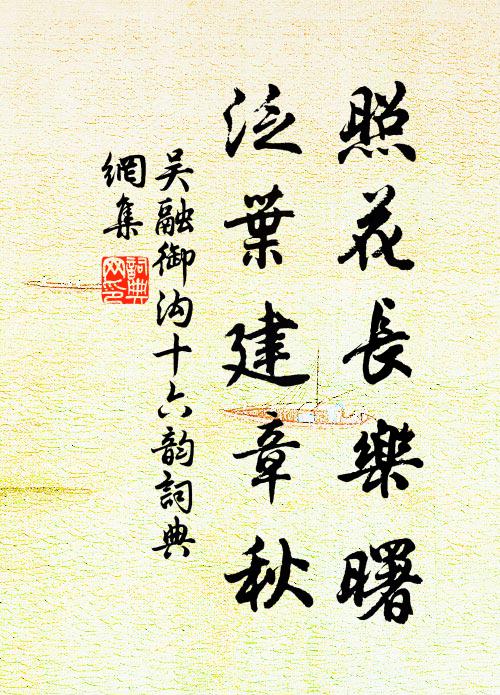 照花長樂曙
泛葉建章秋
吴融御沟十六韵詞典
網集
詞典
网印